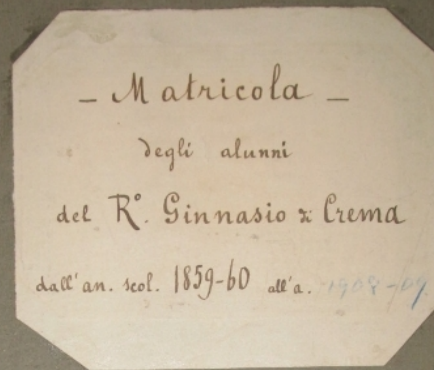 - Matricola -
degli alunni
del R.° Ginnasio di Crema
dall'an. scol. 1859-60 all'a. 1908-09